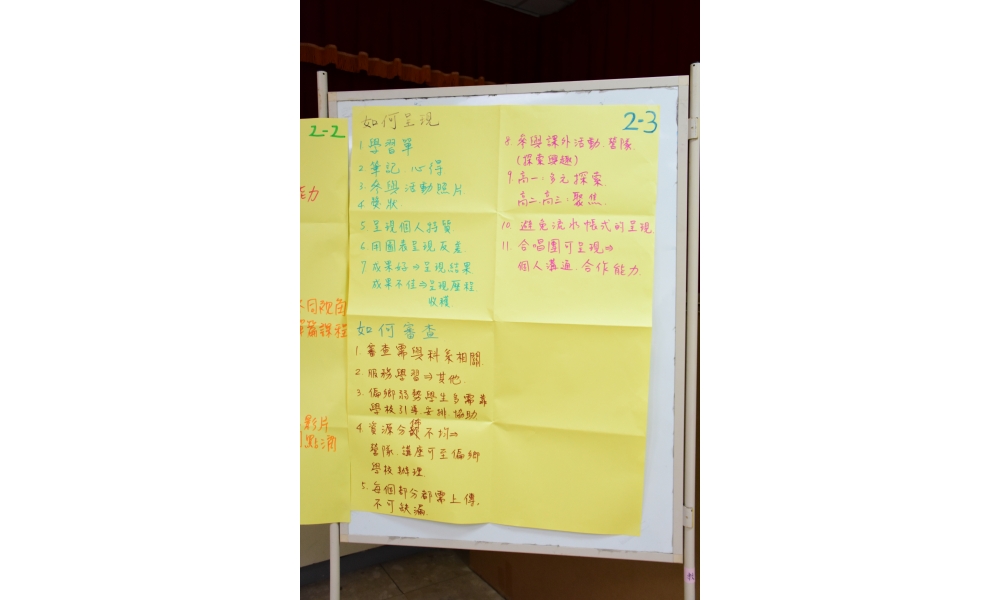 2-2
能力
不同視角
彈篇課程
影片
點滴
2-3
如何呈現
1 學習單
2. 筆記 心得
3. 參與活動照片
4 獎狀
5 呈現個人特質
6 用圖表呈現反差
7 成果好⇒呈現結果
成果不佳⇒呈現歷程
收穫
8. 參與課外活動.營隊
(探索興趣)
9. 高一.多元探索.
高二.高三.聚焦.
10. 避免流水帳式的呈現
11. 合唱團可呈現⇒
個人溝通.合作能力.
如何審查
1. 審查需與科系相關.
2. 服務學習⇒其他.
3. 偏鄉弱勢學生多需靠
學校引導.安排.協助
4. 資源分配不均⇒
營隊.講座可至偏鄉
學校辦理.
5. 每個部分都需上傳.
不可缺漏.